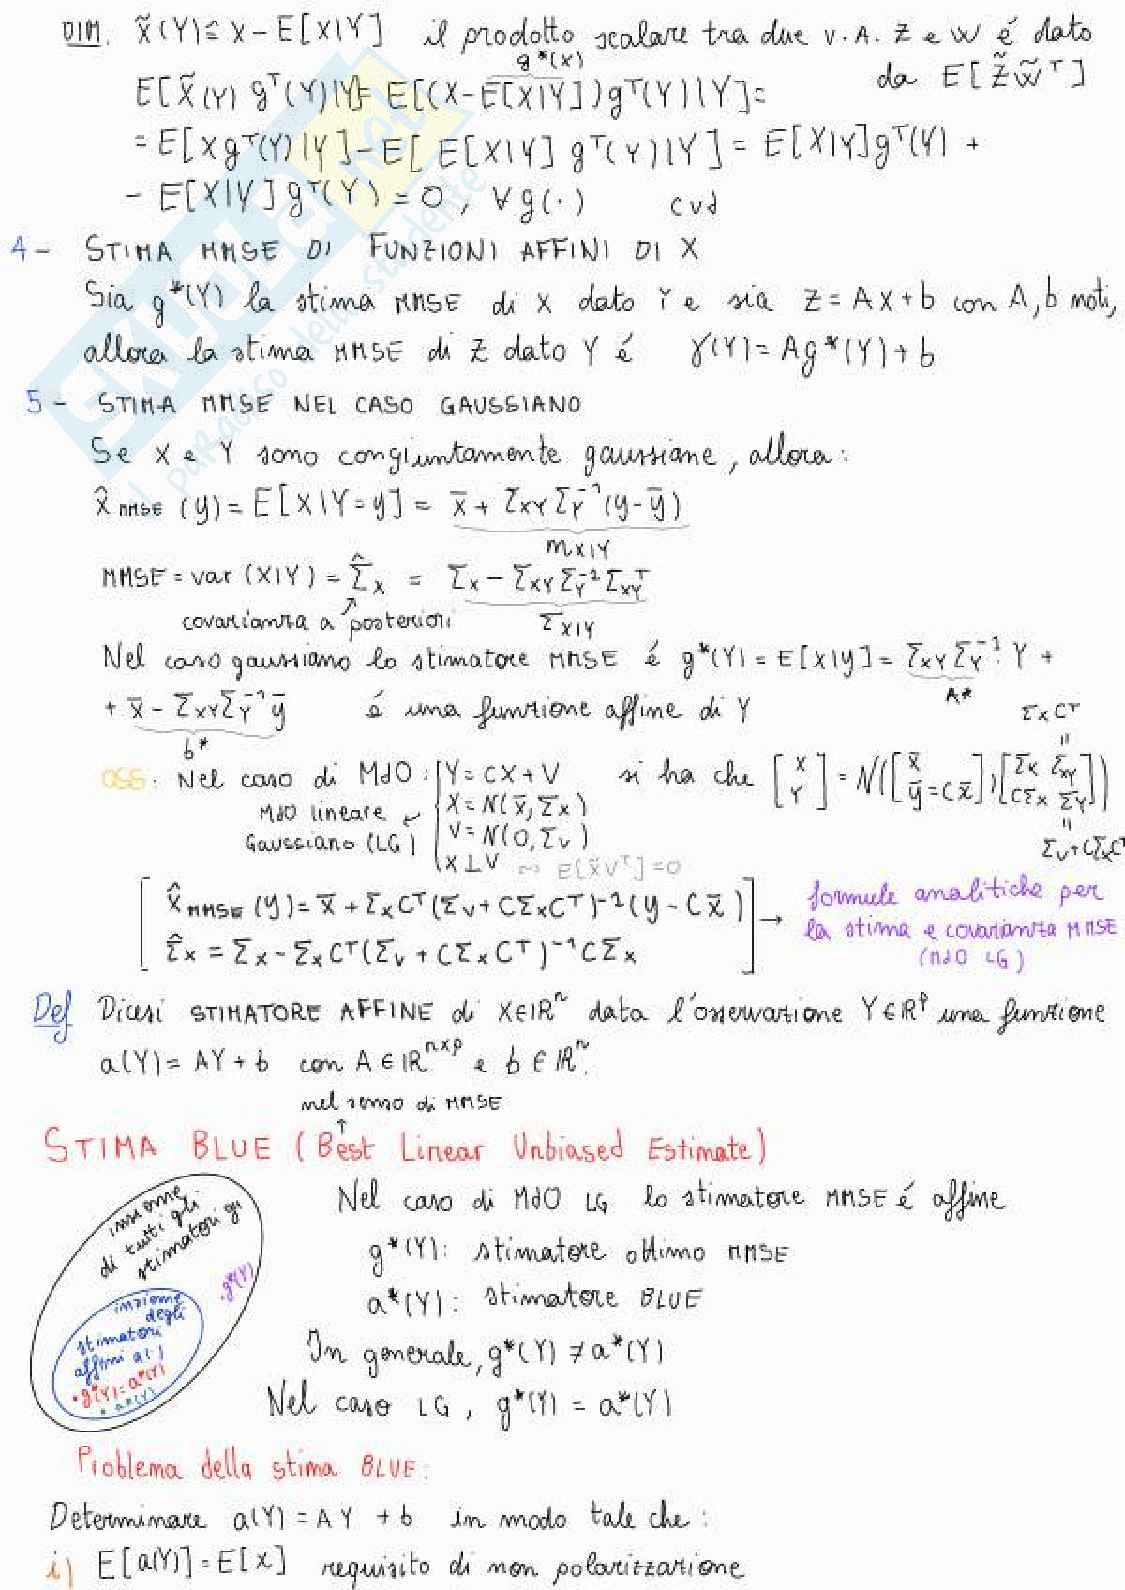 DIM. X̃(Y) ≜ X - E[X|Y] il prodotto scalare tra due v.a. Z e W é dato
g*(X)
da E[Z̃W̃ᵀ]
E[X̃(Y) gᵀ(Y)|Y] = E[(X-E[X|Y])gᵀ(Y)|Y] =
= E[Xgᵀ(Y)|Y] - E[ E[X|Y] gᵀ(Y)|Y] = E[X|Y]gᵀ(Y) +
- E[X|Y]gᵀ(Y) = 0, ∀g(·) cvd
4 - STIMA MMSE DI FUNZIONI AFFINI DI X
Sia g*(Y) la stima MMSE di X dato Y e sia Z = AX + b con A, b noti,
allora la stima MMSE di Z dato Y é γ(Y) = Ag*(Y) + b
5 - STIMA MMSE NEL CASO GAUSSIANO
Se X e Y sono congiuntamente gaussiane, allora:
X̂ MMSE (y) = E[X|Y=y] = x̄ + Σ_XY Σ_Y⁻¹ (y-ȳ)
m_X|Y
MMSE = var (X|Y) = Σ̂_X = Σ_X - Σ_XY Σ_Y⁻¹ Σ_XYᵀ
covarianza a posteriori Σ_X|Y
Nel caso gaussiano lo stimatore MMSE é g*(Y) = E[X|y] = Σ_XY Σ_Y⁻¹ · Y +
A*
+ x̄ - Σ_XY Σ_Y⁻¹ ȳ é una funzione affine di Y
b*
Σ_X Cᵀ
OSS: Nel caso di MdO: { Y = CX + V si ha che [X Y] = N([x̄ ȳ=Cx̄], [Σ_X Σ_XY CΣ_X Σ_Y])
MdO lineare ← X = N(x̄, Σ_X)
Gaussiano (LG) V = N(0, Σ_V)
Σ_V + CΣ_X Cᵀ
X ⊥ V ↔ E[X̃Vᵀ] = 0
X̂ MMSE (y) = x̄ + Σ_X Cᵀ (Σ_V + CΣ_X Cᵀ)⁻¹ (y - Cx̄) → formule analitiche per
la stima e covarianza MMSE
Σ̂_X = Σ_X - Σ_X Cᵀ (Σ_V + CΣ_X Cᵀ)⁻¹ CΣ_X
(MdO LG)
Def Dicesi STIMATORE AFFINE di X∈ℝⁿ data l'osservazione Y∈ℝᵖ una funzione
a(Y) = AY + b con A ∈ ℝⁿˣᵖ e b ∈ ℝⁿ.
nel senso di MMSE
↑
STIMA BLUE (Best Linear Unbiased Estimate)
insieme
di tutti gli
stimatori g(·)
.g*(Y)
insieme
degli
stimatori
affini a(·)
• g*(Y) = a*(Y)
• a*(Y)
Nel caso di MdO LG lo stimatore MMSE é affine
g*(Y): stimatore ottimo MMSE
a*(Y): stimatore BLUE
In generale, g*(Y) ≠ a*(Y)
Nel caso LG, g*(Y) = a*(Y)
Problema della stima BLUE:
Determinare a(Y) = AY + b in modo tale che:
i) E[a(Y)] = E[X] requisito di non polarizzazione
SKUOLA.net
il paradiso dello studente